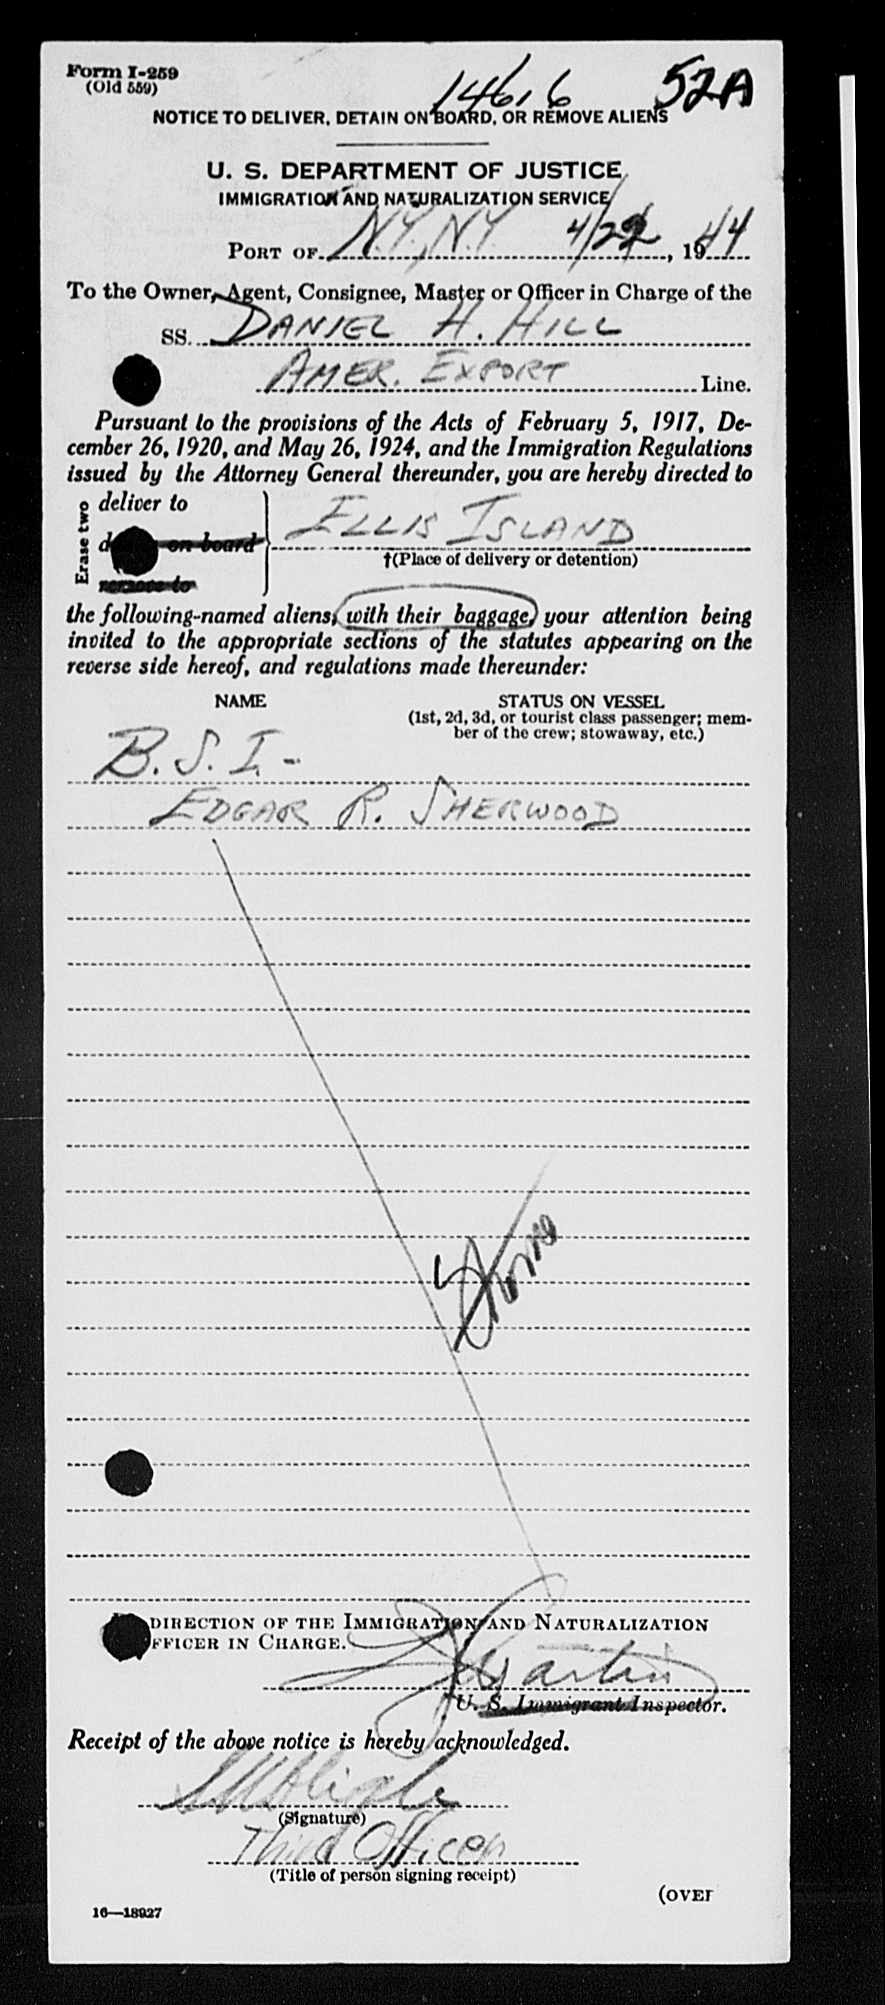 Form I-259
(Old 559)
14616 52A
NOTICE TO DELIVER, DETAIN ON BOARD, OR REMOVE ALIENS
U. S. DEPARTMENT OF JUSTICE
IMMIGRATION AND NATURALIZATION SERVICE
PORT OF N.Y., N.Y. 4/22, 1944
To the Owner, Agent, Consignee, Master or Officer in Charge of the
SS. DANIEL H. HILL
AMER. EXPORT Line.
Pursuant to the provisions of the Acts of February 5, 1917, De-
cember 26, 1920, and May 26, 1924, and the Immigration Regulations
issued by the Attorney General thereunder, you are hereby directed to
Erase two
deliver to
on board
remove to
ELLIS ISLAND
†(Place of delivery or detention)
the following-named aliens, with their baggage, your attention being
invited to the appropriate sections of the statutes appearing on the
reverse side hereof, and regulations made thereunder:
NAME STATUS ON VESSEL
(1st, 2d, 3d, or tourist class passenger; mem-
ber of the crew; stowaway, etc.)
B.S.I. -
EDGAR R. SHERWOOD
DIRECTION OF THE IMMIGRATION AND NATURALIZATION
FFICER IN CHARGE.
Martin
U. S. Immigrant Inspector.
Receipt of the above notice is hereby acknowledged.
(Signature)
Third Officer
(Title of person signing receipt)
(OVER
16—18927